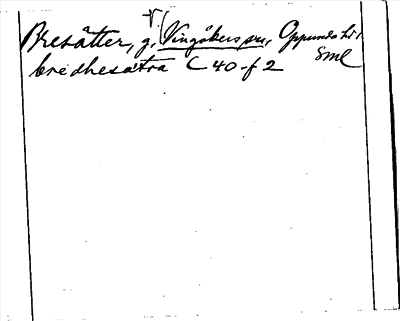 Bresätter, g, V Vingåkers sn, Oppunda hd
Sml
bredhesätra C 40 f 2